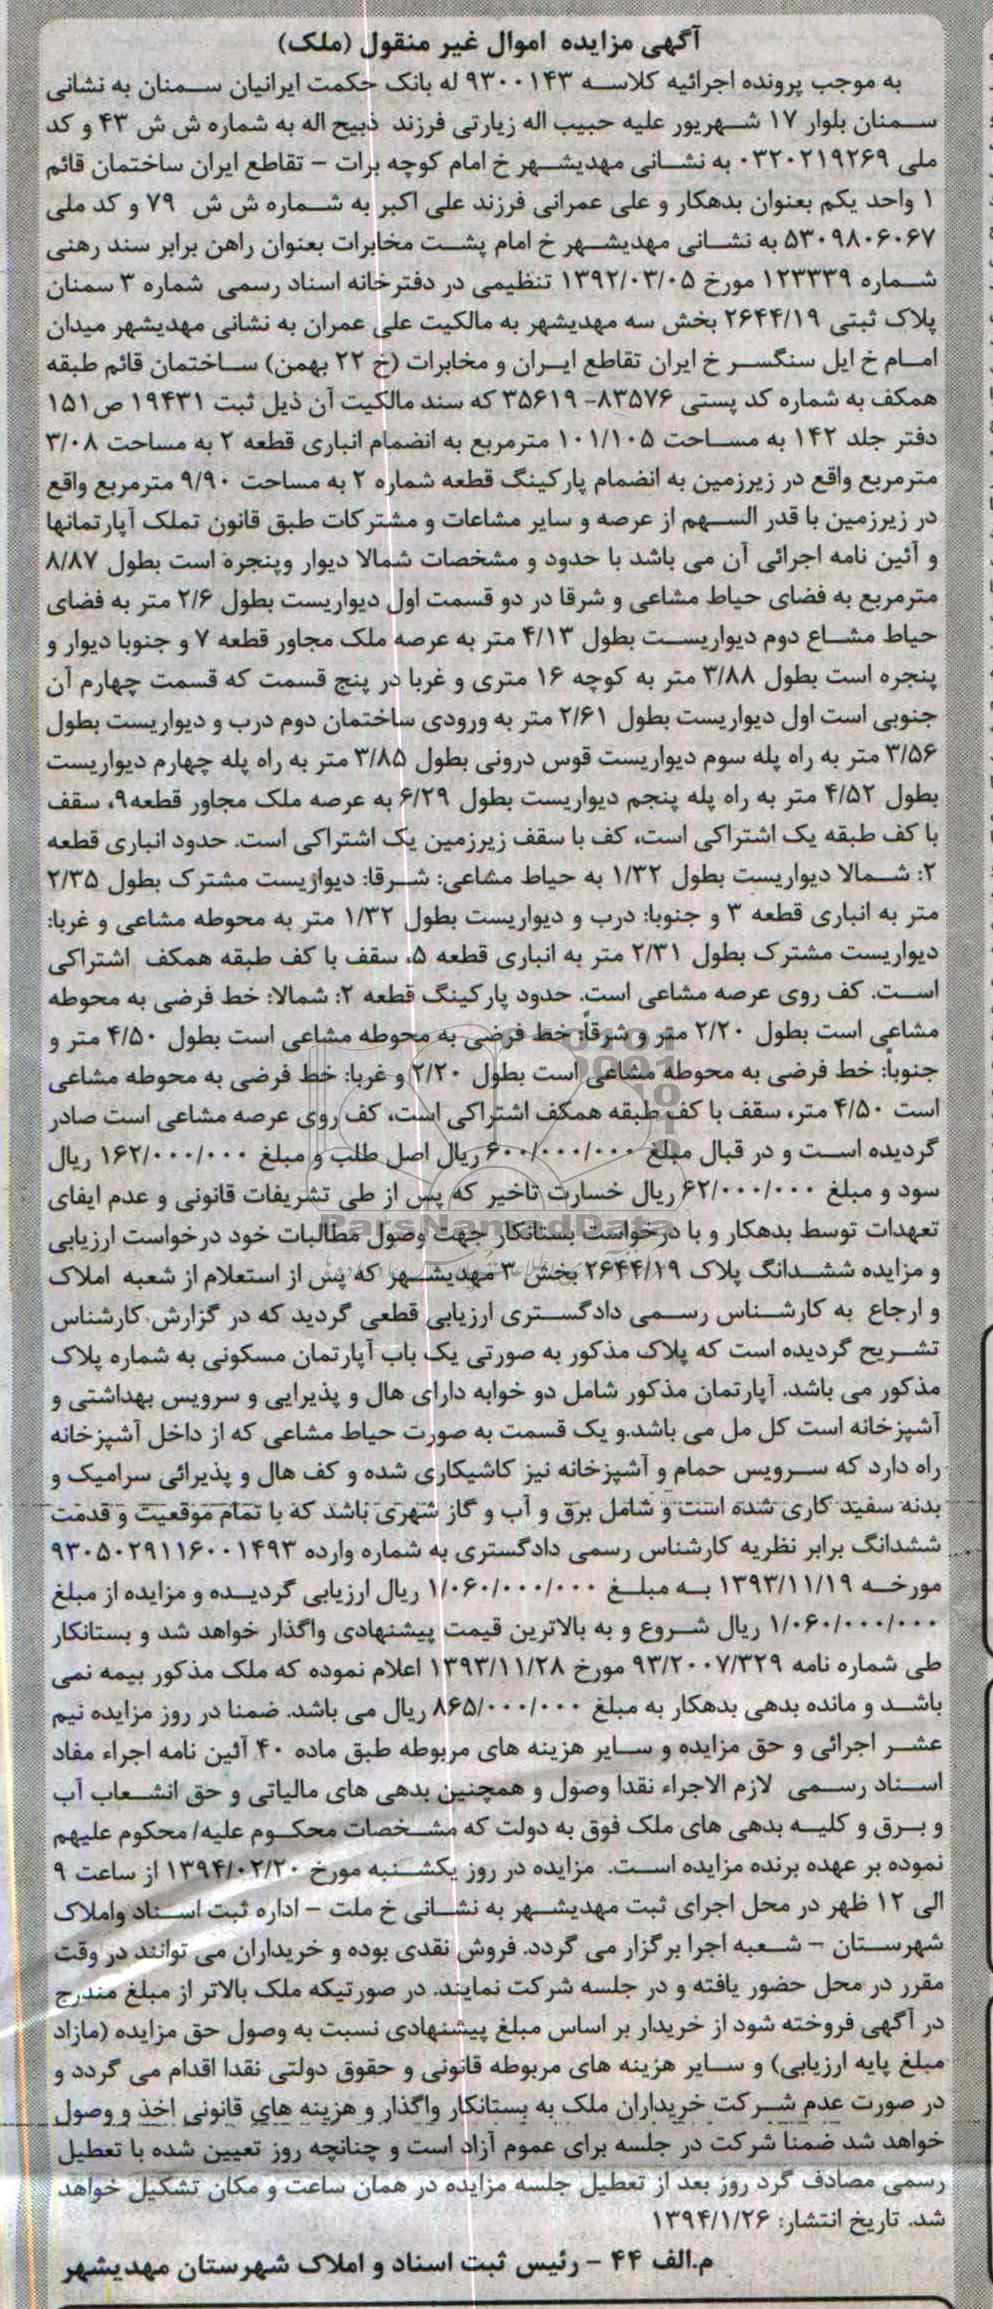 آگهی مزایده اموال غیر منقول (ملک)
به موجب پرونده اجرائیه کلاسه ۹۳۰۰۱۴۳ له بانک حکمت ایرانیان سمنان به نشانی
سمنان بلوار ۱۷ شهریور علیه حبیب اله زیارتی فرزند ذبیح اله به شماره ش ش ۴۳ و کد
ملی ۰۳۲۰۲۱۹۲۶۹ به نشانی مهدیشهر خ امام کوچه برات – تقاطع ایران ساختمان قائم
۱ واحد یکم بعنوان بدهکار و علی عمرانی فرزند علی اکبر به شماره ش ش ۷۹ و کد ملی
۵۳۰۹۸۰۶۰۶۷ به نشانی مهدیشهر خ امام پشت مخابرات بعنوان راهن برابر سند رهنی
شماره ۱۲۳۳۳۹ مورخ ۱۳۹۲/۰۳/۰۵ تنظیمی در دفترخانه اسناد رسمی شماره ۳ سمنان
پلاک ثبتی ۲۶۴۴/۱۹ بخش سه مهدیشهر به مالکیت علی عمران به نشانی مهدیشهر میدان
امام خ ایل سنگسر خ ایران تقاطع ایران و مخابرات (خ ۲۲ بهمن) ساختمان قائم طبقه
همکف به شماره کد پستی ۸۳۵۷۶- ۳۵۶۱۹ که سند مالکیت آن ذیل ثبت ۱۹۴۳۱ ص۱۵۱
دفتر جلد ۱۴۲ به مساحت ۱۰۱/۱۰۵ مترمربع به انضمام انباری قطعه ۲ به مساحت ۳/۰۸
مترمربع واقع در زیرزمین به انضمام پارکینگ قطعه شماره ۲ به مساحت ۹/۹۰ مترمربع واقع
در زیرزمین با قدر السهم از عرصه و سایر مشاعات و مشترکات طبق قانون تملک آپارتمانها
و آئین نامه اجرائی آن می باشد با حدود و مشخصات شمالا دیوار وپنجره است بطول ۸/۸۷
مترمربع به فضای حیاط مشاعی و شرقا در دو قسمت اول دیواریست بطول ۲/۶ متر به فضای
حیاط مشاع دوم دیواریست بطول ۴/۱۳ متر به عرصه ملک مجاور قطعه ۷ و جنوبا دیوار و
پنجره است بطول ۳/۸۸ متر به کوچه ۱۶ متری و غربا در پنج قسمت که قسمت چهارم آن
جنوبی است اول دیواریست بطول ۲/۶۱ متر به ورودی ساختمان دوم درب و دیواریست بطول
۳/۵۶ متر به راه پله سوم دیواریست قوس درونی بطول ۳/۸۵ متر به راه پله چهارم دیواریست
بطول ۴/۵۲ متر به راه پله پنجم دیواریست بطول ۶/۲۹ به عرصه ملک مجاور قطعه۹، سقف
با کف طبقه یک اشتراکی است، کف با سقف زیرزمین یک اشتراکی است. حدود انباری قطعه
۲: شمالا دیواریست بطول ۱/۳۲ به حیاط مشاعی: شرقا: دیواریست مشترک بطول ۲/۳۵
متر به انباری قطعه ۳ و جنوبا: درب و دیواریست بطول ۱/۳۲ متر به محوطه مشاعی و غربا:
دیواریست مشترک بطول ۲/۳۱ متر به انباری قطعه ۵، سقف با کف طبقه همکف اشتراکی
است. کف روی عرصه مشاعی است. حدود پارکینگ قطعه ۲: شمالا: خط فرضی به محوطه
مشاعی است بطول ۲/۲۰ متر و شرقاً: خط فرضی به محوطه مشاعی است بطول ۴/۵۰ متر و
جنوباً: خط فرضی به محوطه مشاعی است بطول ۲/۲۰ و غربا: خط فرضی به محوطه مشاعی
است ۴/۵۰ متر، سقف با کف طبقه همکف اشتراکی است، کف روی عرصه مشاعی است صادر
گردیده است و در قبال مبلغ ۶۰۰/۰۰۰/۰۰۰ ریال اصل طلب و مبلغ ۱۶۲/۰۰۰/۰۰۰ ریال
سود و مبلغ ۶۲/۰۰۰/۰۰۰ ریال خسارت تاخیر که پس از طی تشریفات قانونی و عدم ایفای
تعهدات توسط بدهکار و با درخواست بستانکار جهت وصول مطالبات خود درخواست ارزیابی
و مزایده ششدانگ پلاک ۲۶۴۴/۱۹ بخش ۳ مهدیشهر که پس از استعلام از شعبه املاک
و ارجاع به کارشناس رسمی دادگستری ارزیابی قطعی گردید که در گزارش کارشناس
تشریح گردیده است که پلاک مذکور به صورتی یک باب آپارتمان مسکونی به شماره پلاک
مذکور می باشد. آپارتمان مذکور شامل دو خوابه دارای هال و پذیرایی و سرویس بهداشتی و
آشپزخانه است کل مل می باشد.و یک قسمت به صورت حیاط مشاعی که از داخل آشپزخانه
راه دارد که سرویس حمام و آشپزخانه نیز کاشیکاری شده و کف هال و پذیرائی سرامیک و
بدنه سفید کاری شده است و شامل برق و آب و گاز شهری باشد که با تمام موقعیت و قدمت
ششدانگ برابر نظریه کارشناس رسمی دادگستری به شماره وارده ۹۳۰۵۰۲۹۱۱۶۰۰۱۴۹۳
مورخه ۱۳۹۳/۱۱/۱۹ به مبلغ ۱/۰۶۰/۰۰۰/۰۰۰ ریال ارزیابی گردیده و مزایده از مبلغ
۱/۰۶۰/۰۰۰/۰۰۰ ریال شروع و به بالاترین قیمت پیشنهادی واگذار خواهد شد و بستانکار
طی شماره نامه ۹۳/۲۰۰۷/۳۲۹ مورخ ۱۳۹۳/۱۱/۲۸ اعلام نموده که ملک مذکور بیمه نمی
باشد و مانده بدهی بدهکار به مبلغ ۸۶۵/۰۰۰/۰۰۰ ریال می باشد. ضمنا در روز مزایده نیم
عشر اجرائی و حق مزایده و سایر هزینه های مربوطه طبق ماده ۴۰ آئین نامه اجراء مفاد
اسناد رسمی لازم الاجراء نقدا وصول و همچنین بدهی های مالیاتی و حق انشعاب آب
و برق و کلیه بدهی های ملک فوق به دولت که مشخصات محکوم علیه/ محکوم علیهم
نموده بر عهده برنده مزایده است. مزایده در روز یکشنبه مورخ ۱۳۹۴/۰۲/۲۰ از ساعت ۹
الی ۱۲ ظهر در محل اجرای ثبت مهدیشهر به نشانی خ ملت – اداره ثبت اسناد واملاک
شهرستان – شعبه اجرا برگزار می گردد. فروش نقدی بوده و خریداران می توانند در وقت
مقرر در محل حضور یافته و در جلسه شرکت نمایند. در صورتیکه ملک بالاتر از مبلغ مندرج
در آگهی فروخته شود از خریدار بر اساس مبلغ پیشنهادی نسبت به وصول حق مزایده (مازاد
مبلغ پایه ارزیابی) و سایر هزینه های مربوطه قانونی و حقوق دولتی نقدا اقدام می گردد و
در صورت عدم شرکت خریداران ملک به بستانکار واگذار و هزینه های قانونی اخذ و وصول
خواهد شد ضمنا شرکت در جلسه برای عموم آزاد است و چنانچه روز تعیین شده با تعطیل
رسمی مصادف گرد روز بعد از تعطیل جلسه مزایده در همان ساعت و مکان تشکیل خواهد
شد. تاریخ انتشار: ۱۳۹۴/۱/۲۶
م.الف ۴۴ – رئیس ثبت اسناد و املاک شهرستان مهدیشهر
ParsNamadData